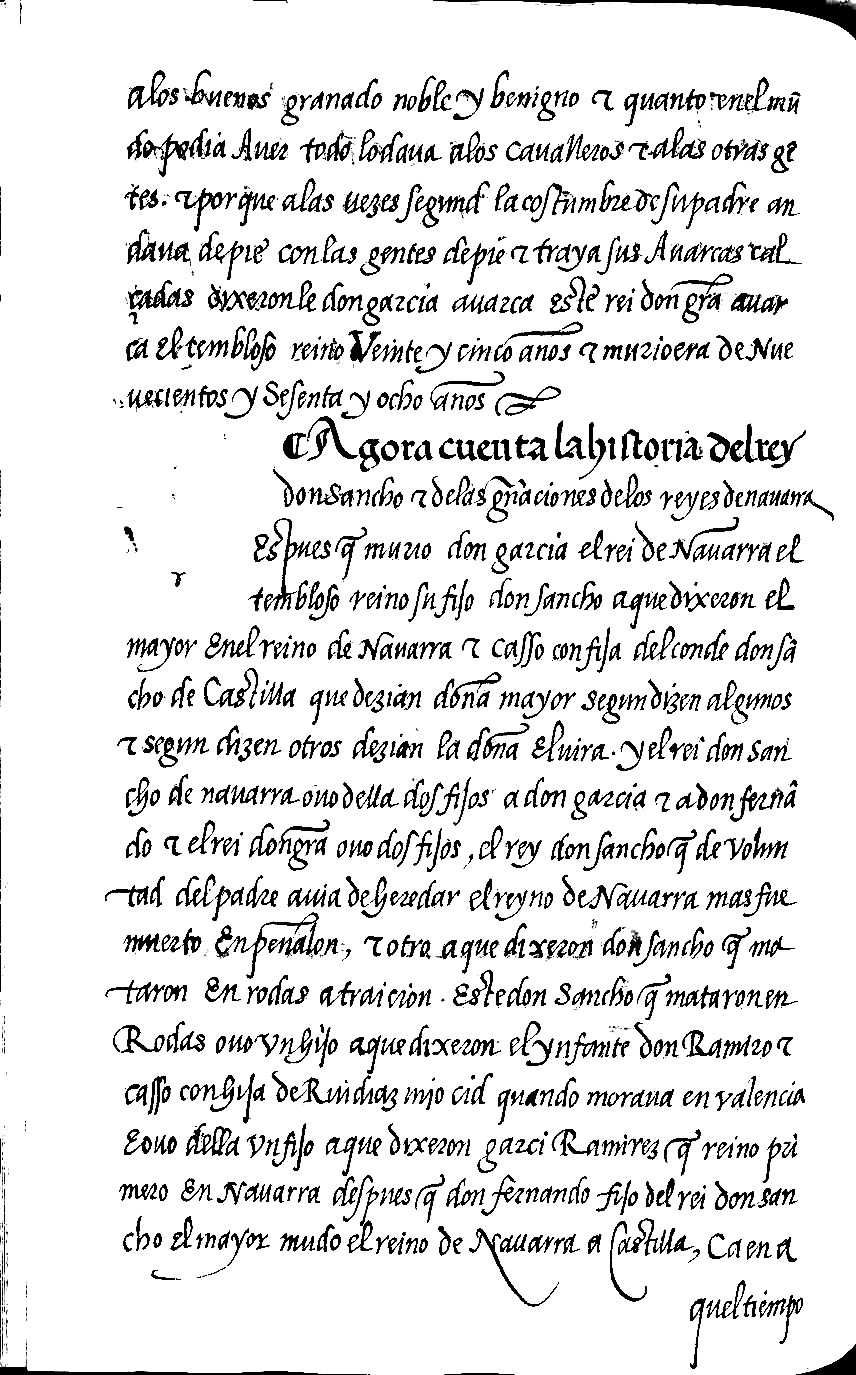 alos buenos granado noble y benigno τ quanto enel mũ
do podia Auer todo lo daua alos caualleros τ alas otras gẽ
tes. τ porque alas vezes segund la costumbre de su padre an
daua de pie con las gentes de pie τ traya sus Auarcas cal
çadas dixeronle don garcia auarca Este rei don gr̃a auar
ca El tembloso reino Veinte y cinco años τ murio era de Nue
uecientos y Sesenta y ocho años
¶ Agora cuenta la historia del rey
don Sancho τ delas gñaciones delos reyes de nauarra
Espues q̃ murio don garcia el rei de Nauarra el
tembloso reino su fijo don sancho a que dixeron el
mayor Enel reino de Nauarra τ Casso con fija del conde don sã
cho de Castilla que dezian doña mayor segun dizen algunos
τ segun dizen otros dezian la doña Eluira. y el rei don san
cho de nauarra ouo della dos fijos a don garcia τ a don fernã
do τ el rei don gr̃a ouo dos fijos, el rey don sancho q̃ de volun
tad del padre auia de heredar el reyno de Nauarra mas fue
muerto En peñalon, τ otro a que dixeron don sancho q̃ ma
taron En rodas a traicion. Este don Sancho q̃ mataron en
Rodas ouo vn hijo a que dixeron el ynfante don Ramiro τ
casso con hija de Rui diaz mio cid quando moraua en valencia
E ouo della vn fijo a que dixeron garci Ramirez q̃ reino pri
mero En Nauarra despues q̃ don fernando fijo del rei don san
cho El mayor mudo el reino de Nauarra a Castilla, Ca en a
quel tiempo